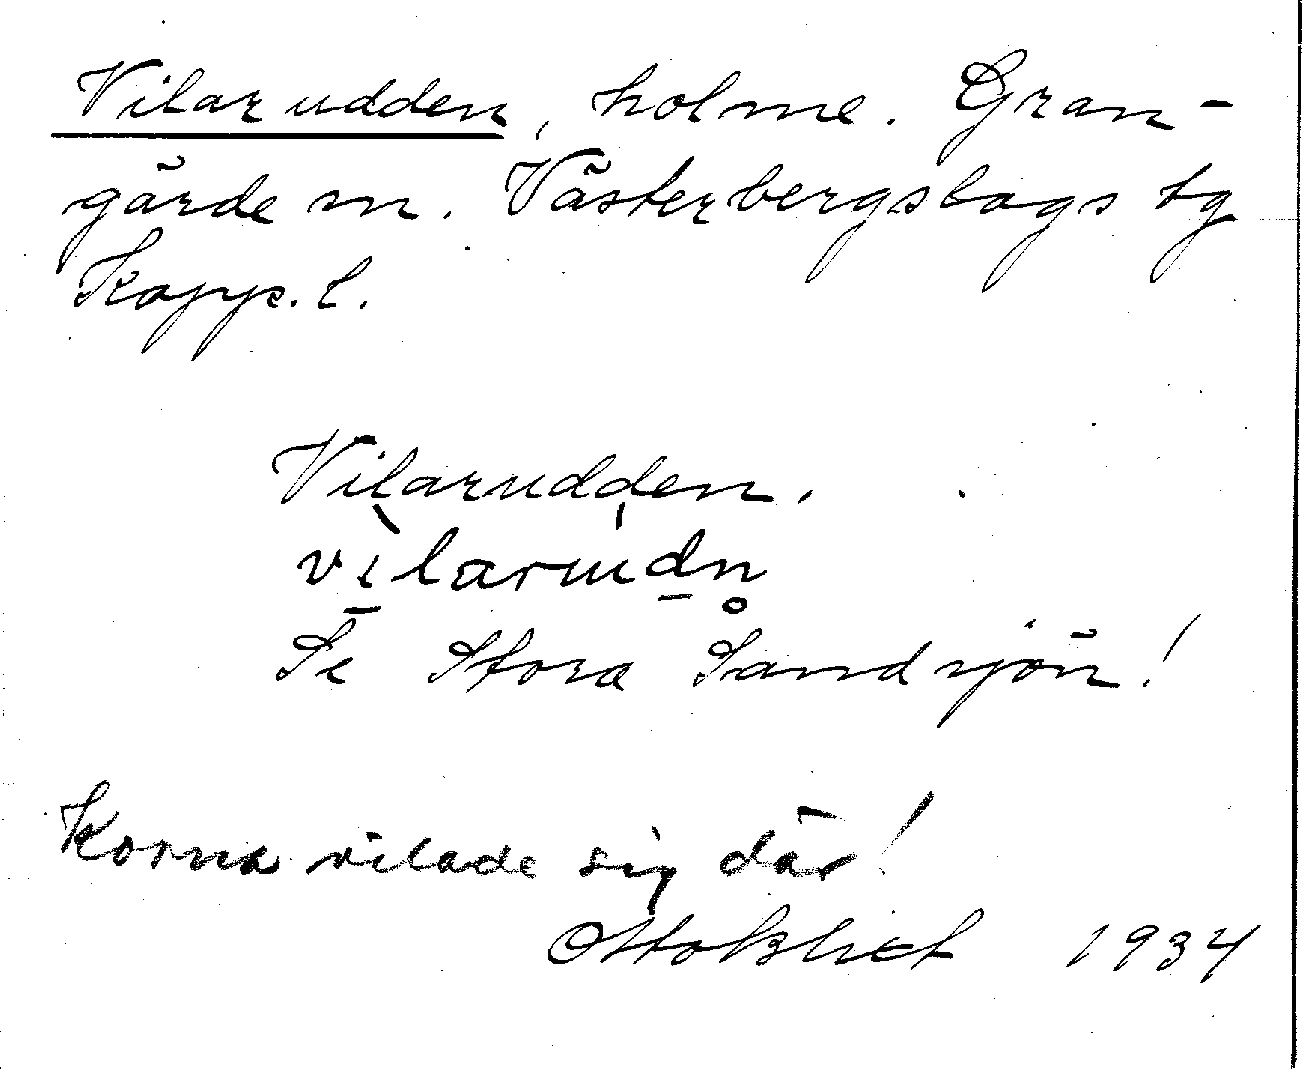 Vilarudden, holme. Gran-
gärde sn. Västerbergslags tg
Kopp. l.
Vilarudden.
vìlarúdn̥
Se Stora Sandsjön!
Korna vilade sig där!
Otto Blixt 1934